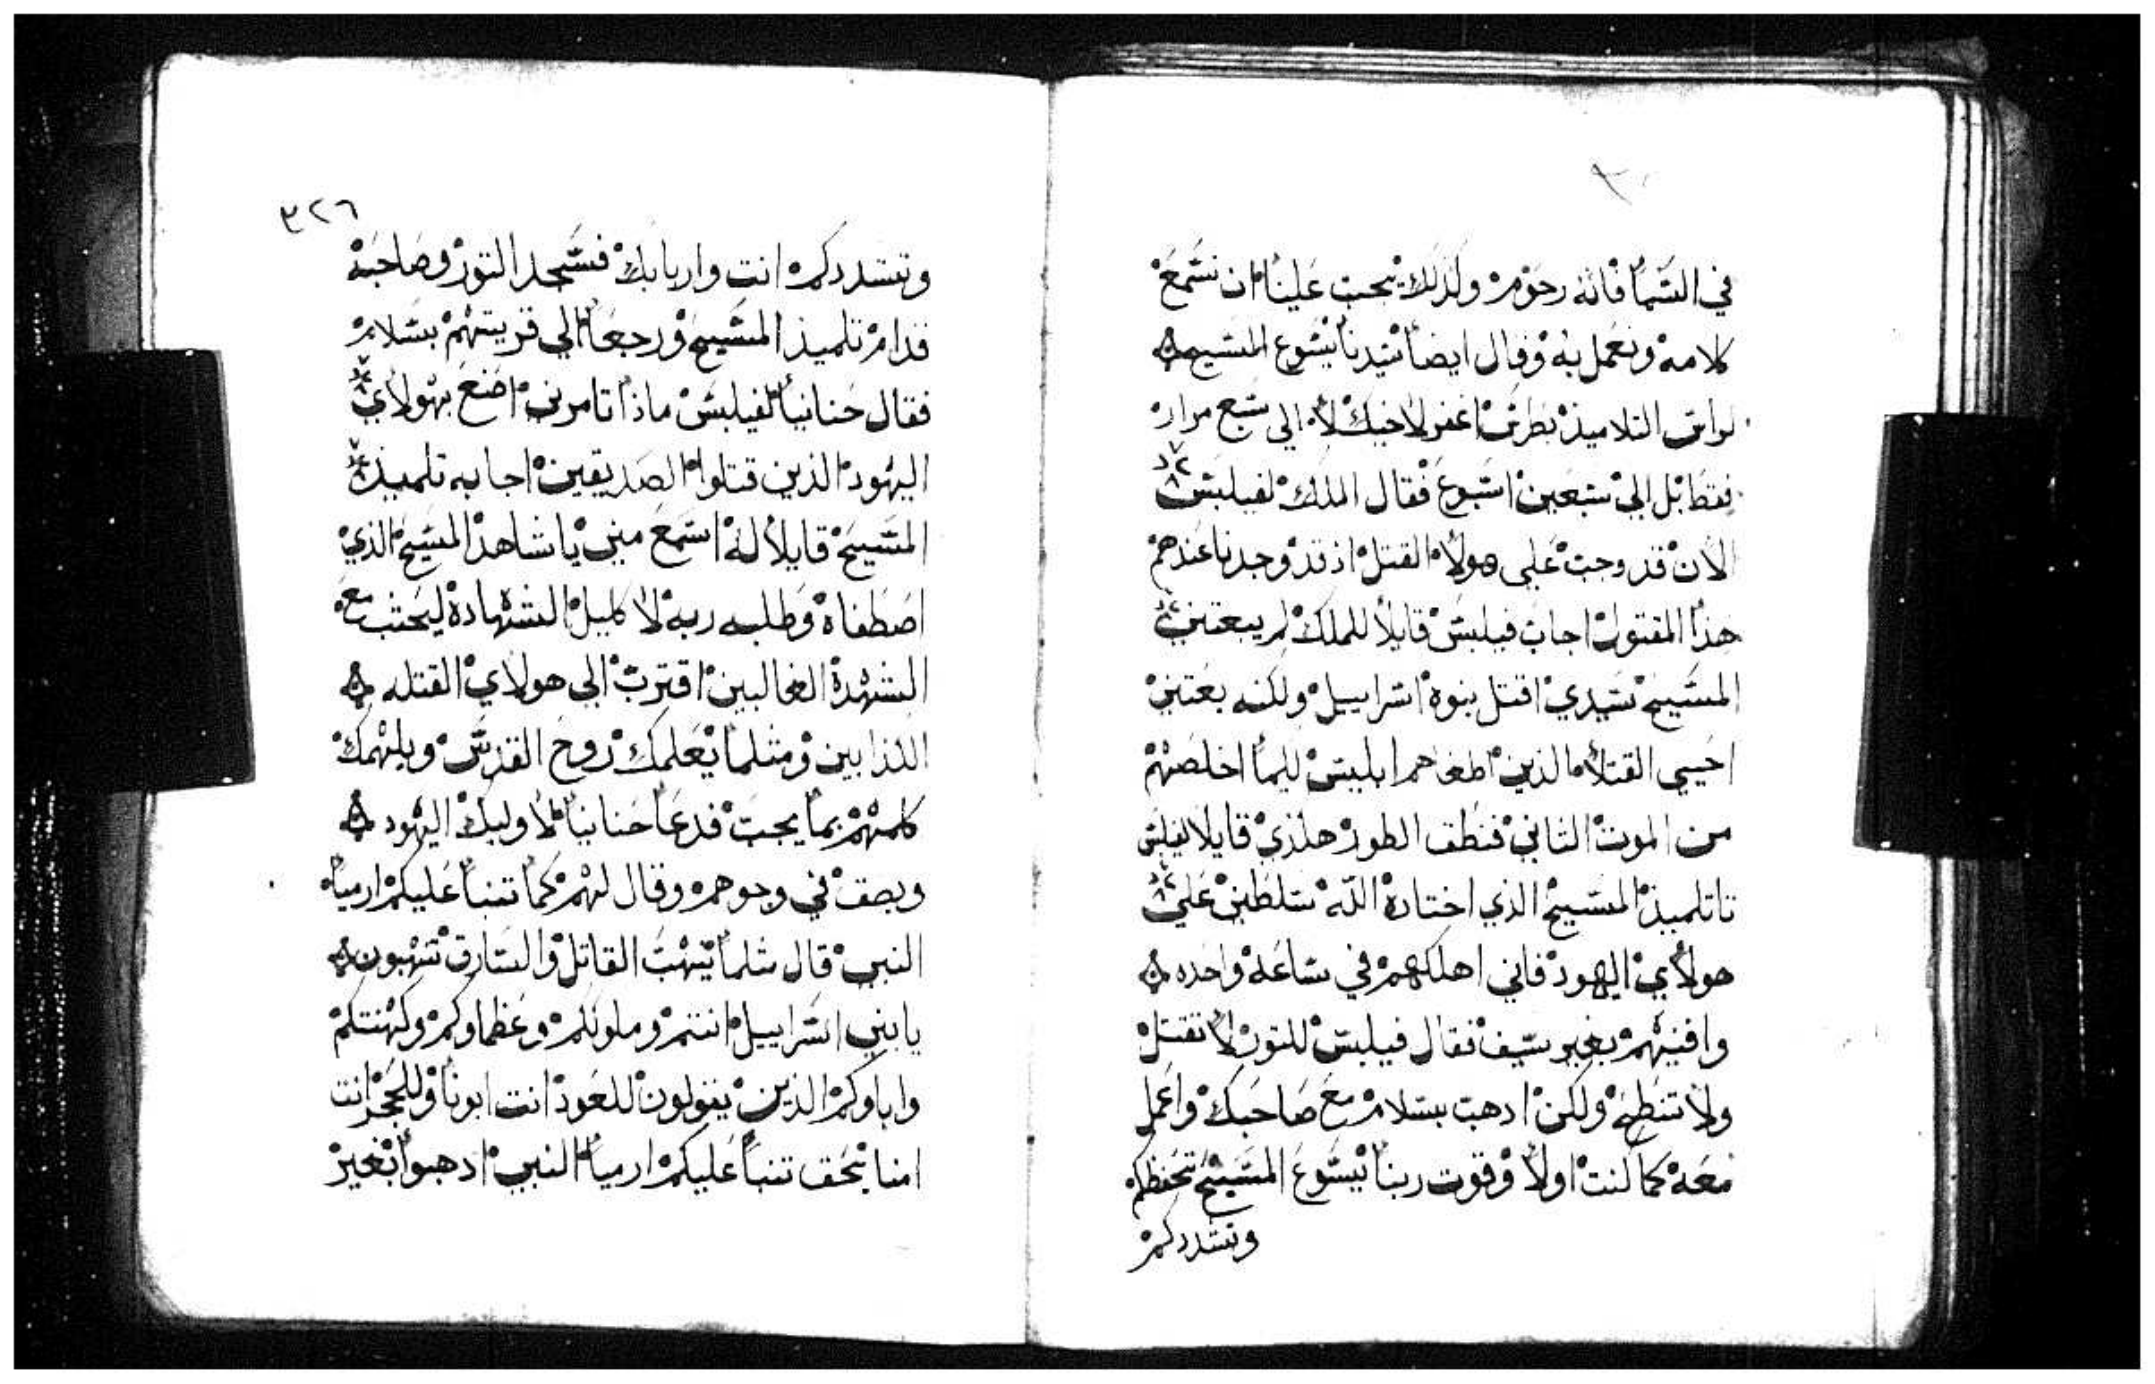 في السما فانه رحوم ولذلك يجب علينا ان نسمع
كلامه ونعمل به وقال ايضا سيدنا يسوع المسيح
لراس التلاميذ بطرس اغفر لاخيك لا الى سبع مرار
فقط بل الي سبعين اسبوع فقال الملك لفيلبس
الان قد وجب على هولا القتل اذ قد وجدنا عندهم
هذا المقتول اجاب فيلبس قايلا للملك لم يبعتني
المسيح سيدي اقتل بنوة اسراييل ولكنه بعتني
احيي القتلا الذين اطغاهم ابليس لكيما اخلصهم
من الموت التاني فنطق الطور هكذي قايلا لفيلبس
يا تلميذ المسيح الذي اختاره الله سلطني علي
هولاي اليهود فاني اهلكهم في ساعة واحده
وافنيهم بغير سيف فقال فيلبس للتور لا تقتل
ولا تنطح ولكن ادهب بسلام مع صاحبك واعمل
معه كما كنت اولا وقوت ربنا يسوع المسيح تحفظكم
وتشددكم
٣٢٦
وتشددكم انت واربابك فسجد التور وصاحبه
قدام تلميذ المسيح ورجعا الي قريتهم بسلام
فقال حنانيا لفيلبس ماذا تامرني اصنع بهولاي
اليهود الذين قتلوا الصديقين اجابه تلميذ
المسيح قايلا له اسمع مني يا شاهد المسيح الذي
اصطفاه وطلبه ربه لاكليل الشهادة ليحسب مع
الشهدة الغالبين اقترب الي هولاي القتله
الكذابين ومتلما يعلمك روح القدس ويلهمك
كلمهم بما يجب فدعا حنانيا لاوليك اليهود
وبصق في وجوههم وقال لهم كما تنبا عليكم ارميا
النبي قال متلما يبهت القاتل والسارق تبهتون
يا بني اسراييل انتم وملوككم وعظماوكم وكهنتكم
واباوكم الذين يقولون للعود انت ابونا وللحجر انت
امنا بحق تنبا عليكم ارميا النبي ادهبوا بغير